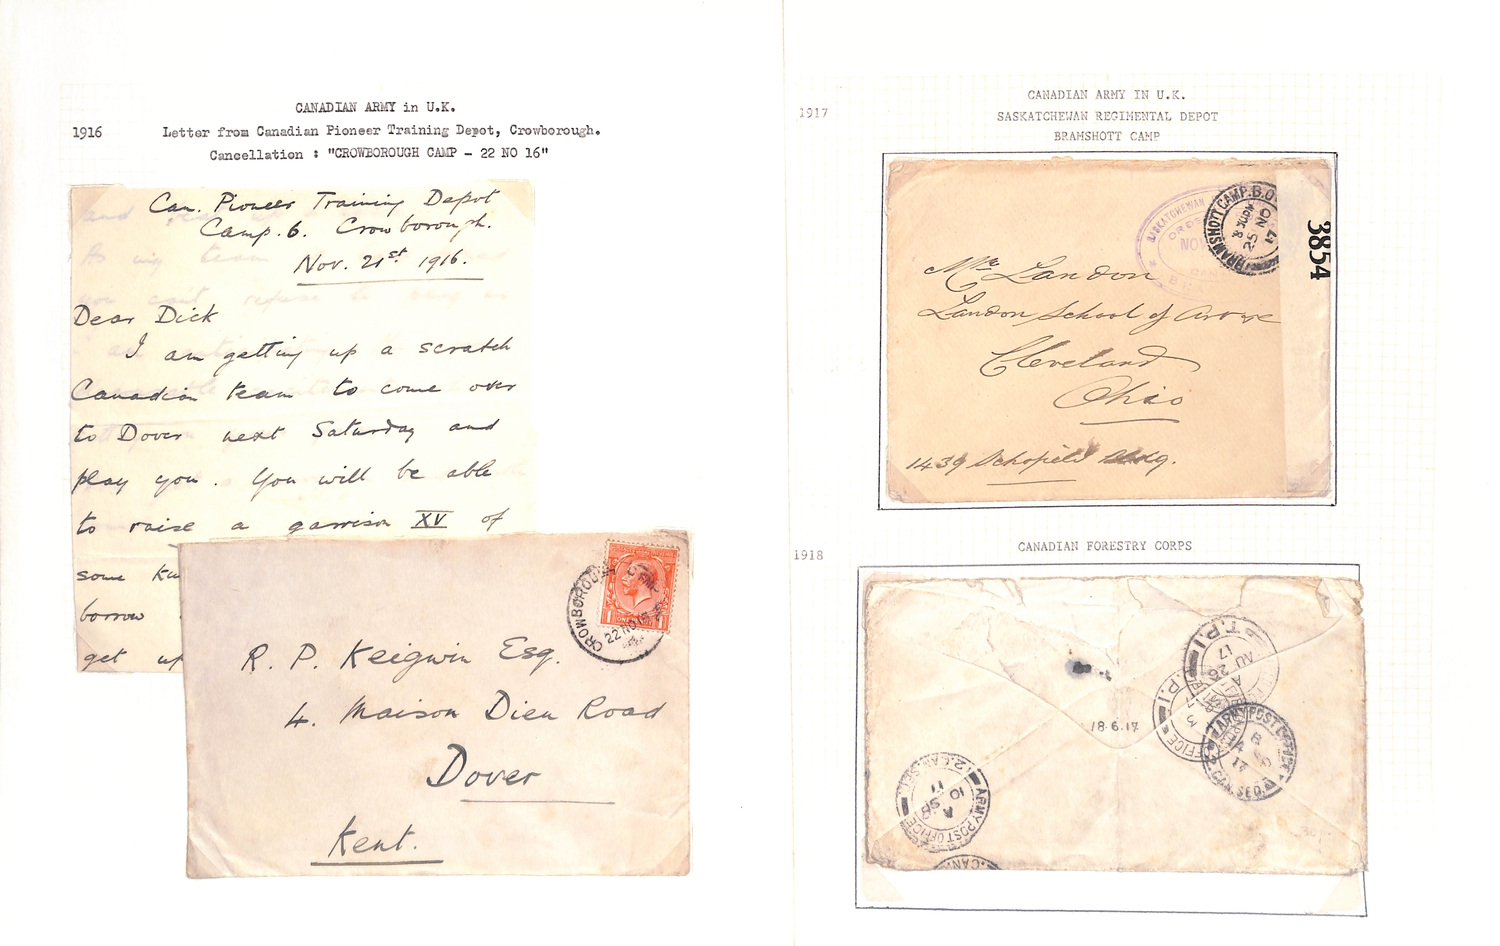 CANADIAN ARMY in U.K.
1916 Letter from Canadian Pioneer Training Depot, Crowborough.
Cancellation : "CROWBOROUGH CAMP - 22 NO 16"
Can. Pioneer Training Depot
Camp. 6. Crowborough.
Nov. 21st 1916.
Dear Dick
I am getting up a scratch
Canadian team to come over
to Dover next Saturday and
play you. You will be able
to raise a garrison XV of
some
borrow
get up
CROWBOROUGH
22 NO 16
R. P. Keigwin Esq.
4. Maison Dieu Road
Dover
Kent.
CANADIAN ARMY IN U.K.
1917
SASKATCHEWAN REGIMENTAL DEPOT
BRAMSHOTT CAMP
SASKATCHEWAN
NOV
BRAMSHOTT CAMP. B.O.
25 NO
17
3854
Mr Landon
Landon School of
Cleveland
Ohio
1439 Schofield Bldg.
CANADIAN FORESTRY CORPS
1918
T.P.I
AU 26
17
P.I
OFFICE
ARMY POST OFFICE
CAN. SEC.
18.6.17
ARMY POST OFFICE
2. CAN. SEC.
A
10
17
CAN.